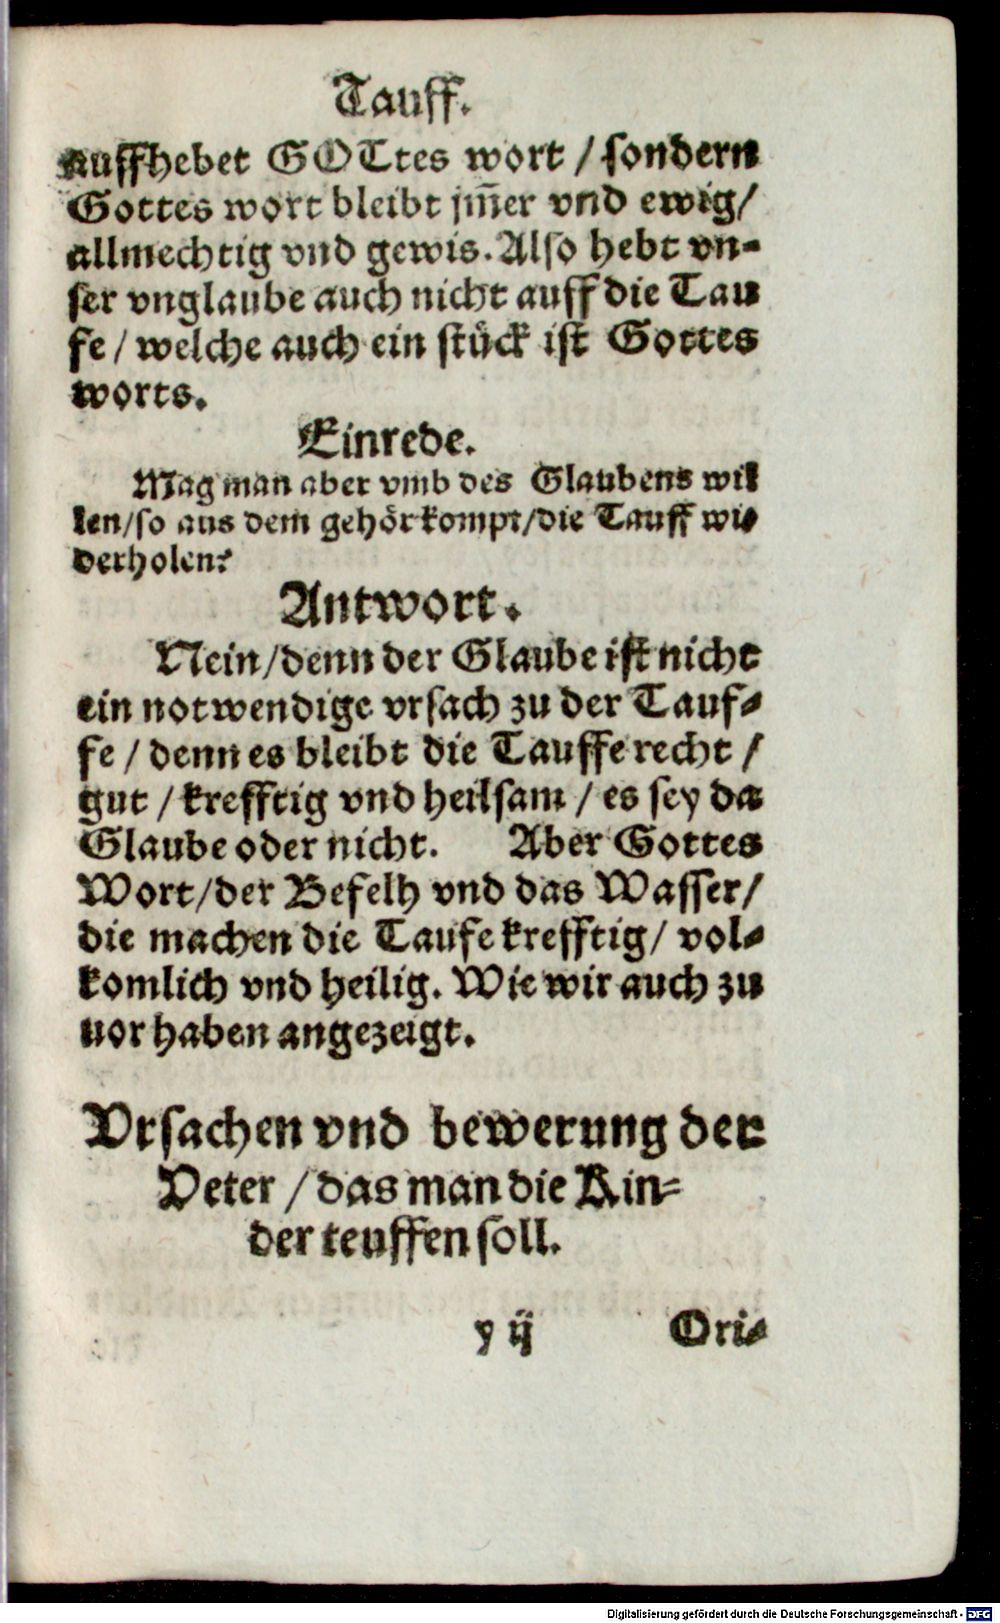 Tauff.
auffhebet GOTtes wort / sondern
Gottes wort bleibt jm̃er vnd ewig/
allmechtig vnd gewis. Also hebt vn-
ser vnglaube auch nicht auff die Tau
fe / welche auch ein stück ist Gottes
worts.
Einrede.
Mag man aber vmb des Glaubens wil
len/so aus dem gehör kompt/die Tauff wi-
derholen?
Antwort.
Nein/denn der Glaube ist nicht
ein notwendige vrsach zu der Tauf-
fe / denn es bleibt die Tauffe recht /
gut / krefftig vnd heilsam / es sey da
Glaube oder nicht. Aber Gottes
Wort/der Befelh vnd das Wasser/
die machen die Taufe krefftig/ vol-
komlich vnd heilig. Wie wir auch zu
uor haben angezeigt.
Vrsachen vnd bewerung der
Veter / das man die Kin-
der teuffen soll.
y ij Ori-
Digitalisierung gefördert durch die Deutsche Forschungsgemeinschaft - DFG